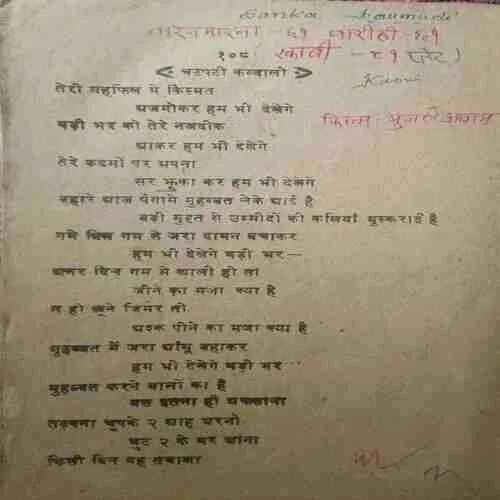 Sanka Kaumudi
१०८
चटपटी कव्वाली
Kavvi
तेरी महफिल में किस्मत
अजमोकर हम भी देखेगे
घड़ी भर को तेरे नजदीक
आकर हम भी देखेगे
तेरे कदमों पर अपना
सर झूका कर हम भी देखगे
बहारे आज पैगामे मुहब्बत लेके आई है
बड़ी मुद्दत से उम्मीदों की कलियाँ मुस्कराई है
गमे दिल गम से जरा दामन बचाकर
हम भी देखेगे घड़ी भर—
अगर दिल गम से खाली हो तो
जीने का मजा क्या है
न हो खूने जिगर तो
अश्क पीने का मजा क्या है
मुहब्बत में जरा आँसू बहाकर
हम भी देखेगे घड़ी भर—
मुहब्बत करने वालों का है
बस इतना ही
तड़पना चुपके २ आह भरनो
घुट २ के मर जाना
किसी दिन यह तमाशा